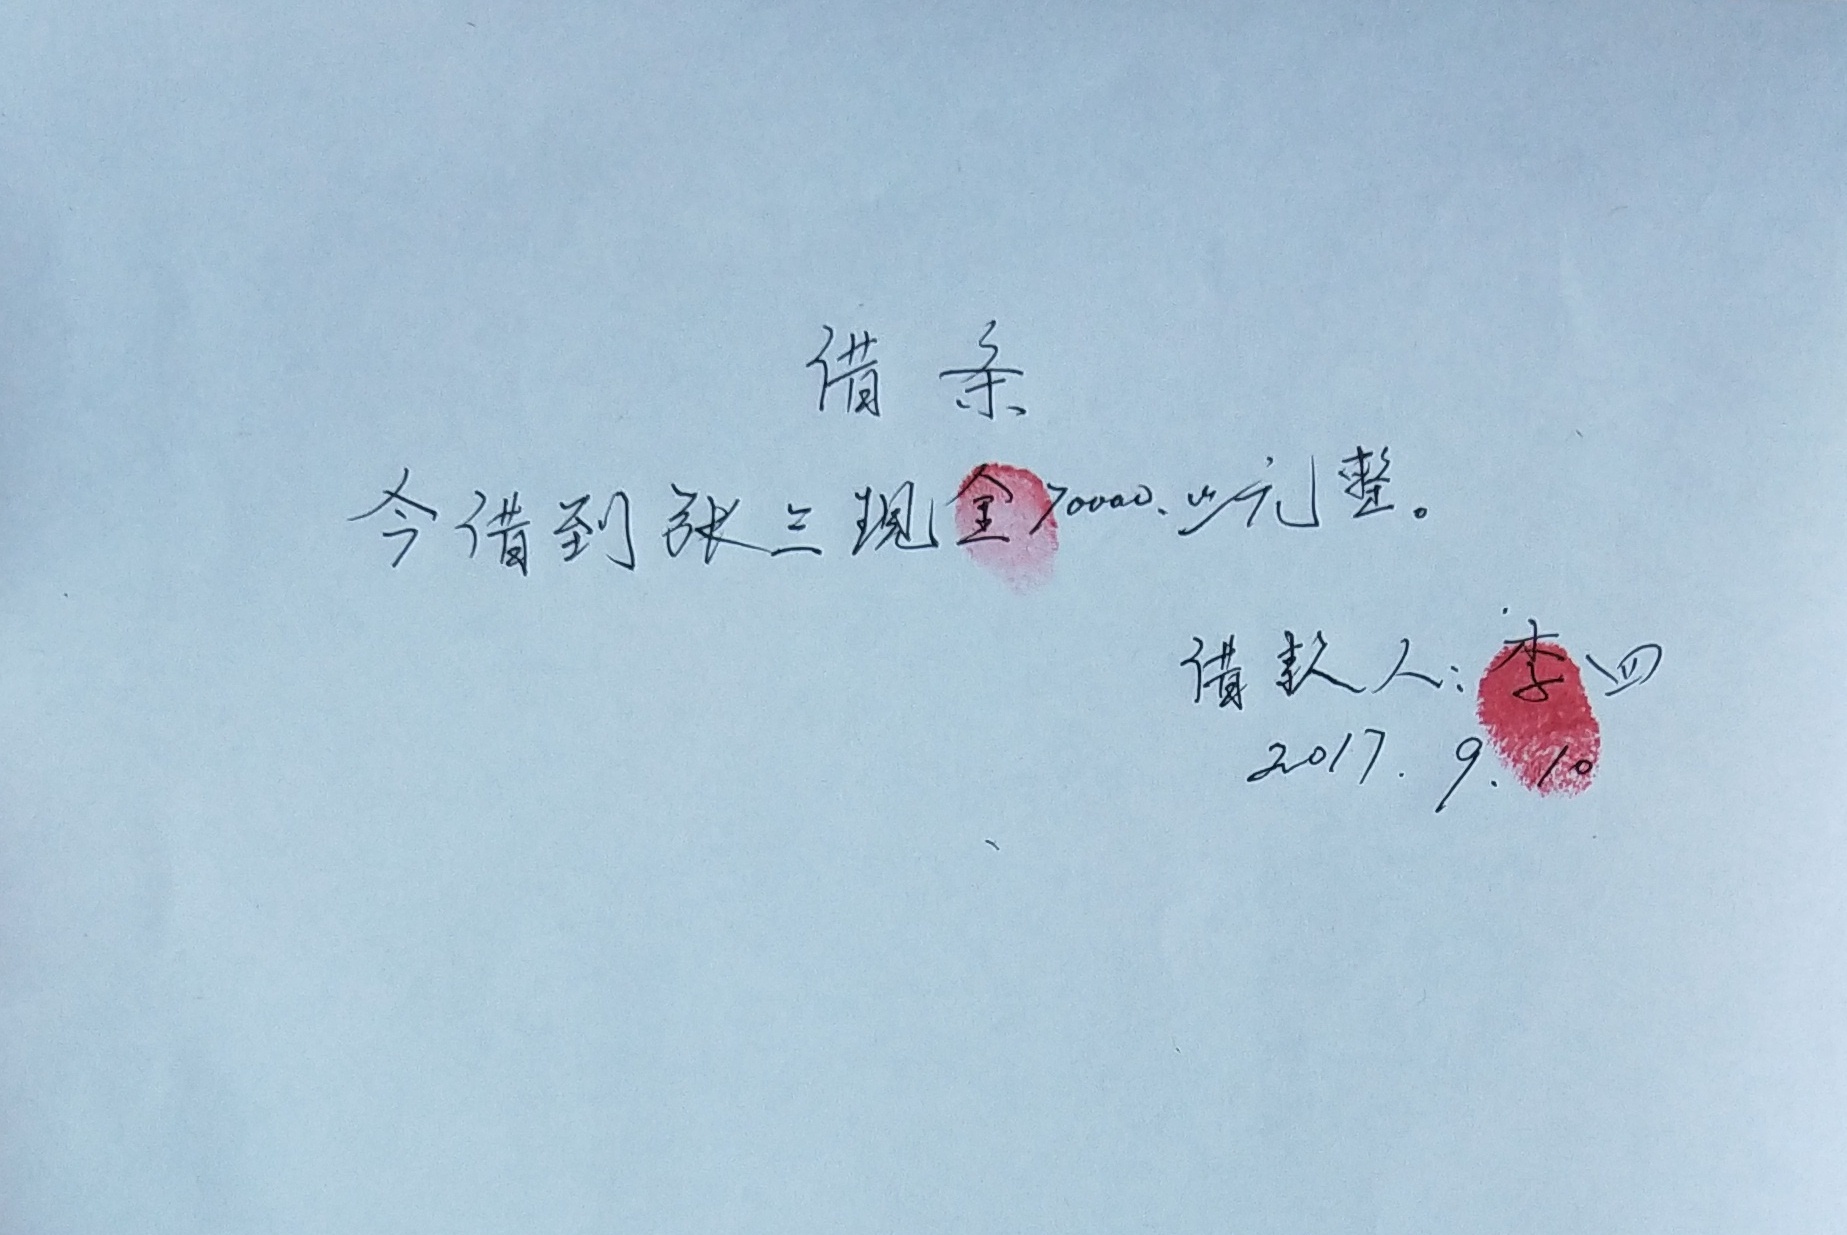 借条
今借到张三现金70000.00元整。
借款人:李四
2017.9.10